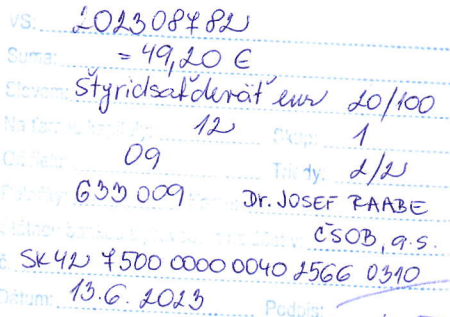 VS: 202308782
Suma: = 49,20 €
Slovom: štyridsaťdeväť eur 20/100
12 Skup: 1
09 Triedy: 2/2
633 009 Dr. JOSEF RAABE
ČSOB, a.s.
SK42 7500 0000 0040 2566 0310
Dátum: 13.6. 2023 Podpis: